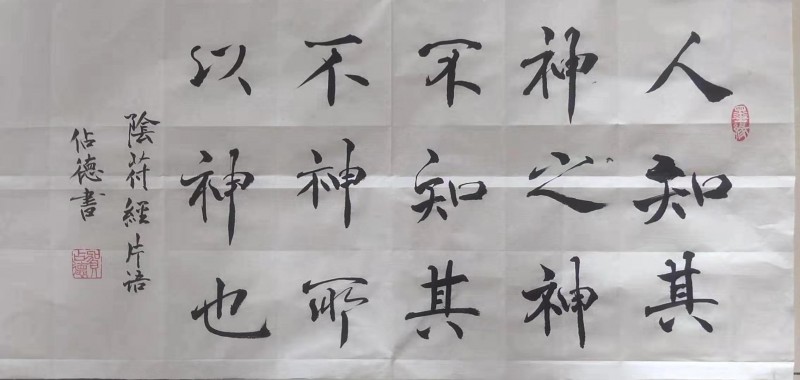 人知其
神之神
不知其
不神所
以神也
陰符經片語
佔德書